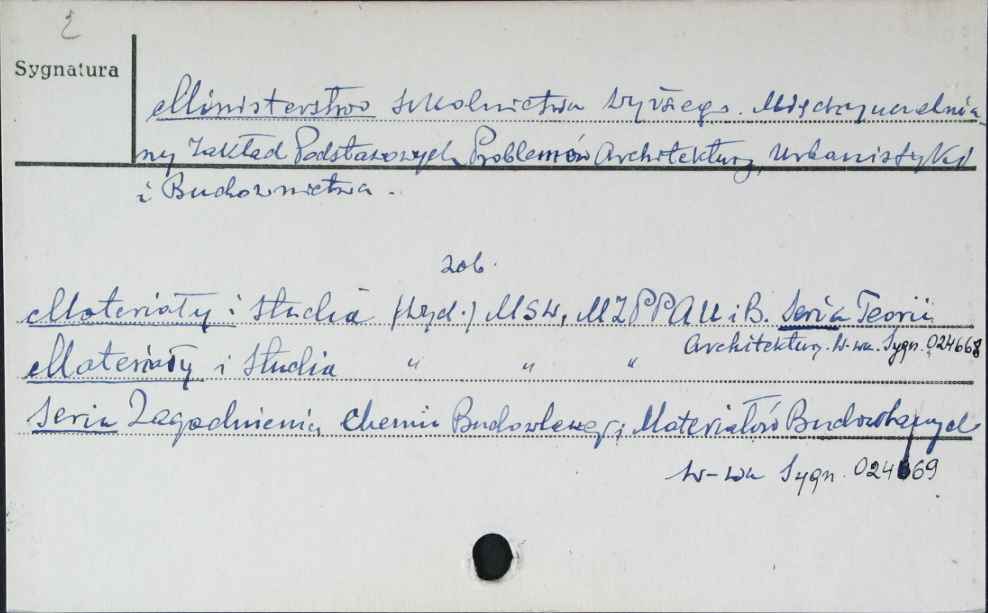 Sygnatura
Ministerstwo Szkolnictwa Wyższego. Międzyuczelnia-
ny Zakład Podstawowych Problemów Architektury, Urbanistyki
i Budownictwa.
zob.
Materiały i Studia (Wyd.) MSW, MZPPAU i B. Seria Teorii
Architektury. W-wa. Sygn. 024668
Materiały i Studia " " "
Seria Zagadnienia Chemii Budowlanej i Materiałów Budowlanych
W-wa Sygn. 024669